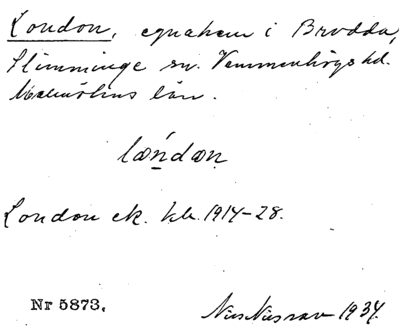 London, egnahem i Brodda,
Slimminge sn. Vemmenhögs hd.
Malmöhus län.
lǿndøn
London ek. kb. 1914-28.
Nr 5873.
1934.